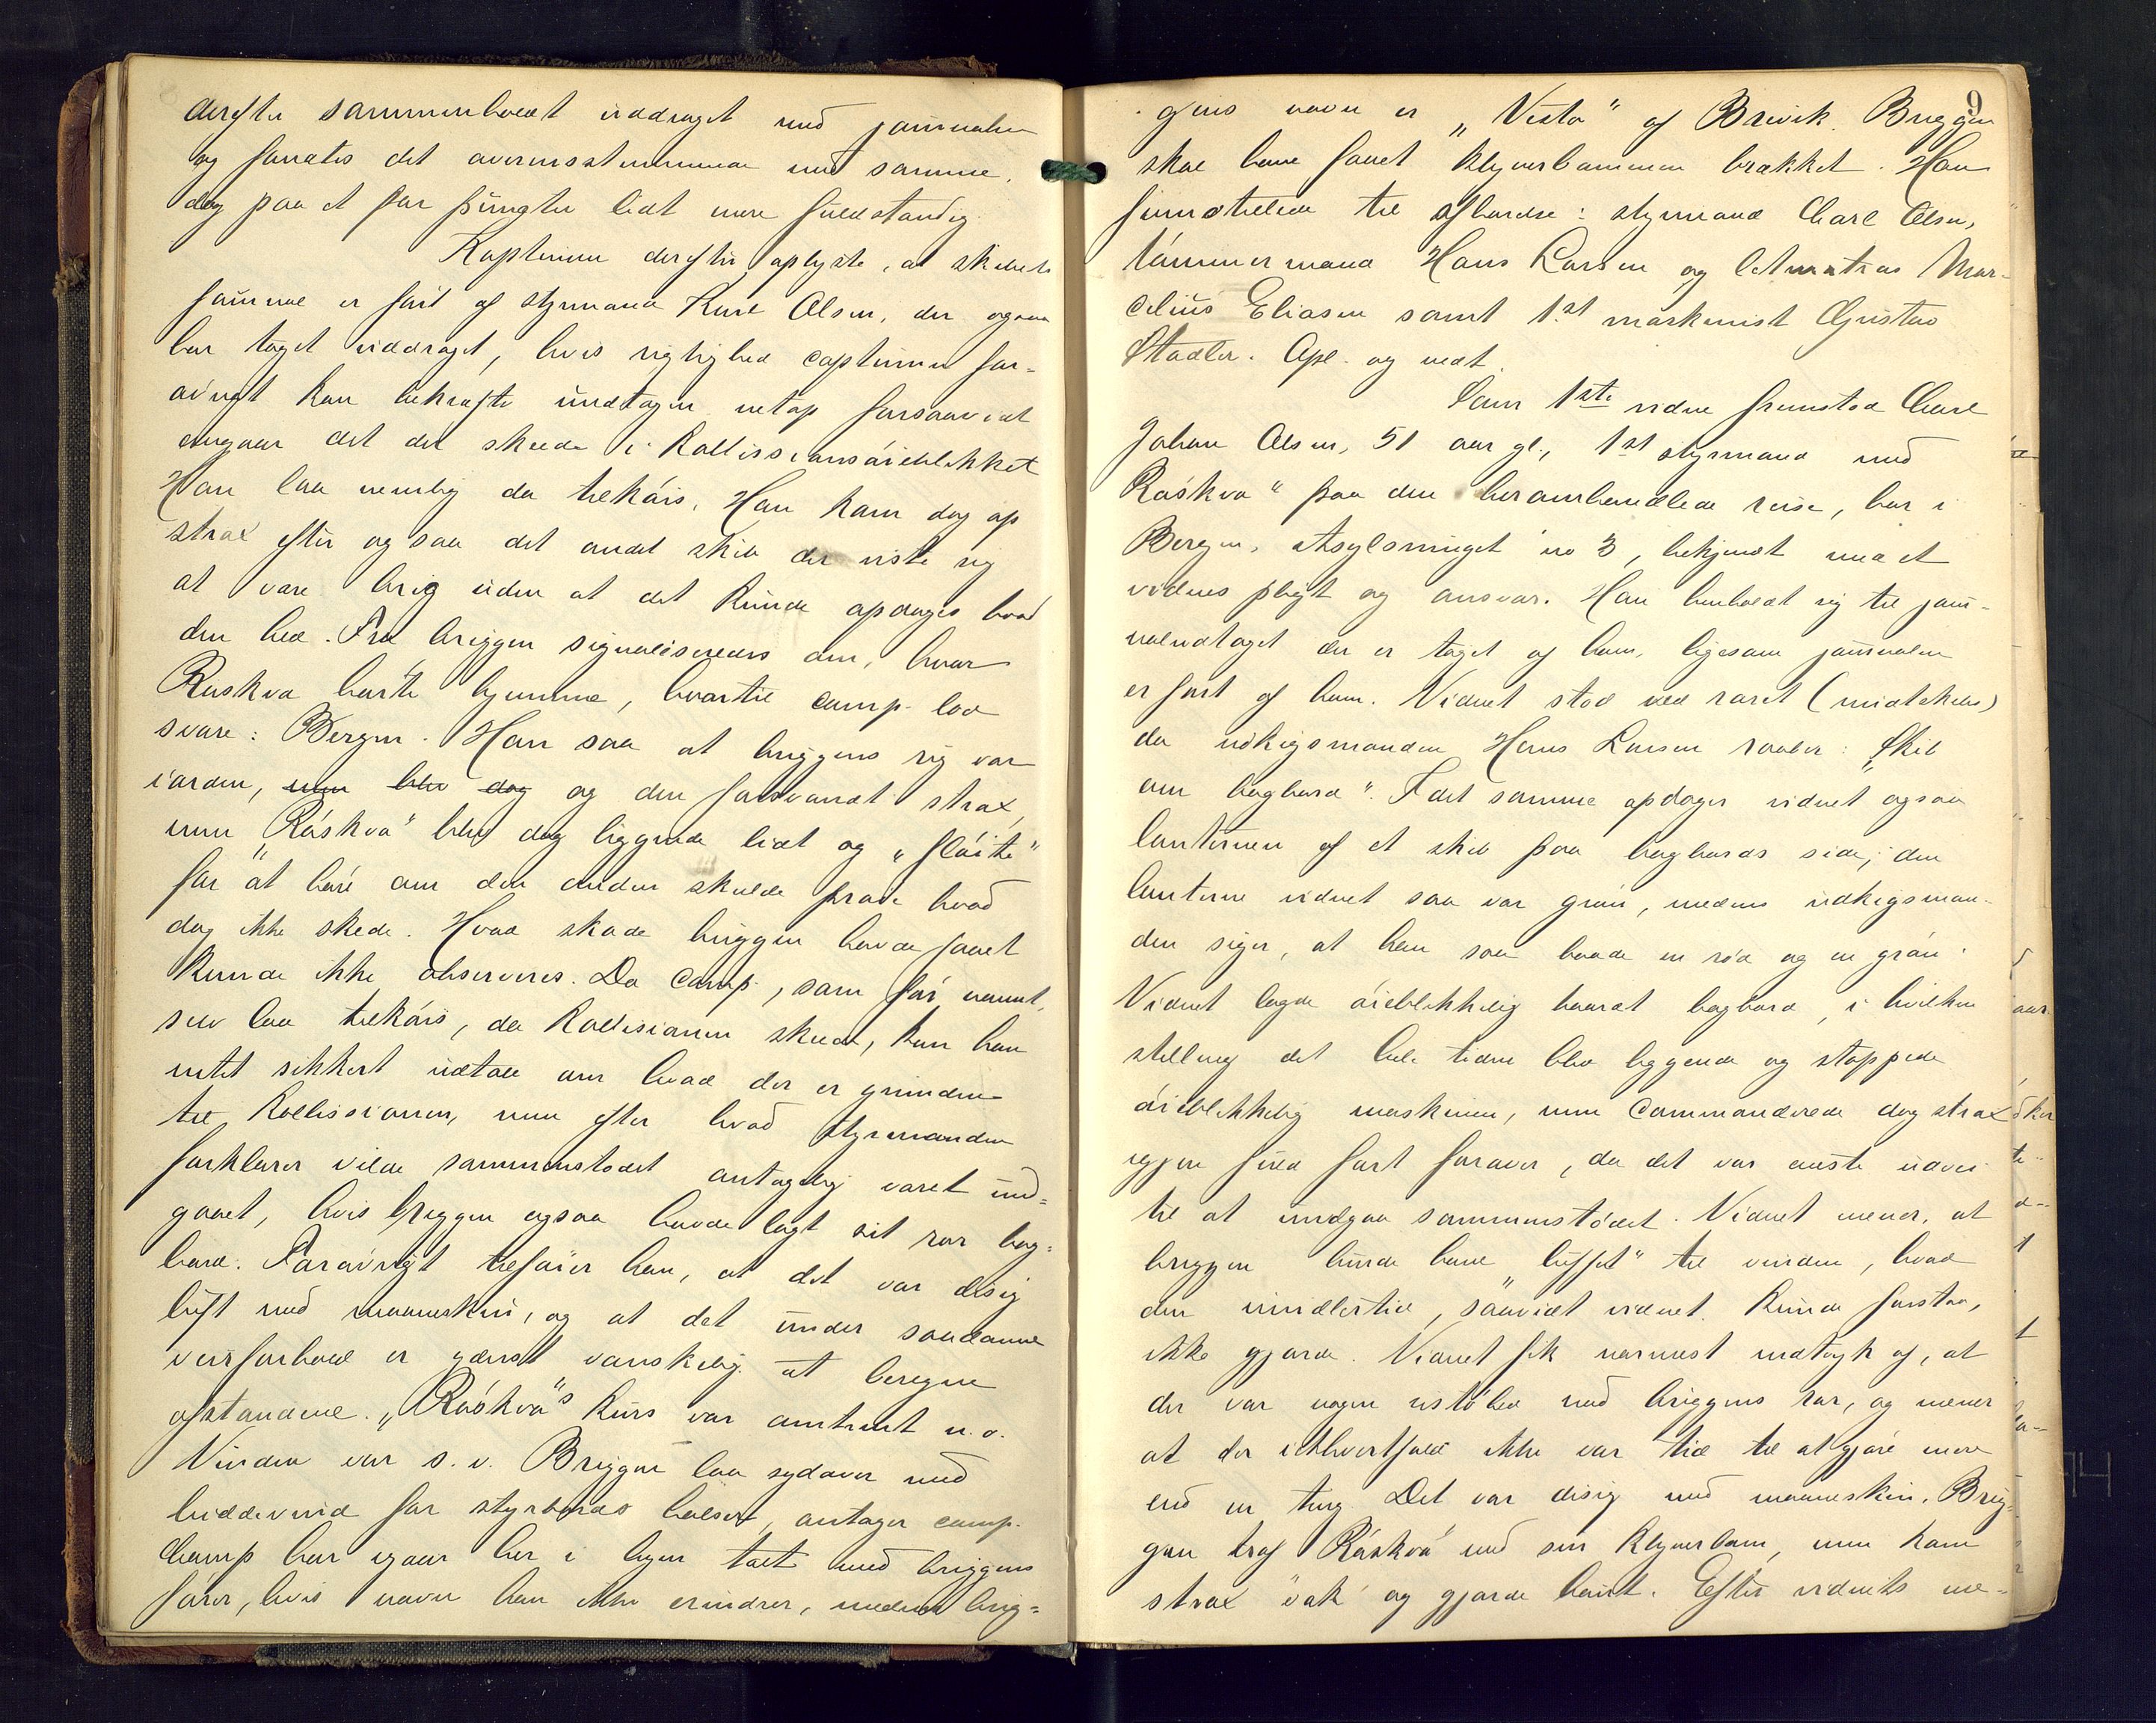 derefter sammenholdt uddraget med journalen
og fandtes det overensstemmende med samme,
dog paa et par pungter lidt mere fuldstændig.
Kapteinen derefter oplyste, at skibets
journal er ført af styrmand Karl Olsen, der ogsaa
har taget uddraget, hvis rigtighed captainen for-
øvrigt kan bekræfte undtagen netop forsaavidt
angaar det der skede i Kollissionsøieblikket
Han laa nemlig da tilkøis. Han kam dog op
strax efter og saa det andet skib der viste sig
at være brig uden at det kunde opdages hvad
den hed. Fra briggen signaliseredes om, hvor
Røskva hørte hjemme, hvortil comp. lod
svare: Bergen. Han saa at briggens rig var
iorden, men blev dog og den forsvandt strax,
men "Røskva" blev dog liggende lidt og "fløite"
for at høre om den anden skulde praie hvad
dog ikke skede. Hvad skade briggen havde faaet
kunde ikke observeres. Da comp., som før nævnt,
selv laa tilkøis, da Kollisionen skede, kan han
intet sikkert udtale om hvad der er grunden
til Kollissionen, men efter hvad styrmanden
forklarer vilde sammenstødet antagelig været und-
gaaet, hvis briggen ogsaa havde lagt sit ror bag-
bord. Forøvrigt tilføier han, at det var disig
luft med maaneskin, og at det under saadanne
veirforhold er yderst vanskelig at beregne
afstandene. "Røskva"s kurs var omtrent n.o.
Vinden var s.v. Briggen laa sydover med
biddevind for styrbords halser, antager comp.
Comp har igaar her i byen talt med briggens
fører, hvis navn han ikke erindrer, medens brig-
9
gens navn er "Vesta" af Brevik. Briggen
skal have faaet klyverbommen brækket. Han
fremstillede til afhørelse: styrmand Carl Olsen,
tømmermand Hans Larsen og letmatros Mar-
celius Eliasen samt 1st maskinist Gustav
Stadler. Opl. og vedt.
Som 1ste vidne fremstod Carl
Johan Olsen, 51 aar gl., 1st styrmand med
Røskva" paa den heromhandlede reise, bor i
Bergen, Asylsmuget no 3, bekjendt med et
vidnes pligt og ansvar. Han henholdt sig til jour-
naludtoget der er taget af ham, ligesom journalen
er ført af ham. Vidnet stod ved roret (midtskibs)
da udkigsmanden Hans Larsen raaber: "Skib
om bagbord". I det samme opdager vidnet ogsaa
lanternen af et skib paa bagbords side; den
lanterne vidnet saa var grøn, medens udkigsman-
den siger, at han saa baade en rød og en grøn.
Vidnet lagde øieblikkelig haardt bagbord, i hvilken
stilling det hele tiden blev liggende og stoppede
øieblikkelig maskinen, men commanderede dog strax
igjen fuld fart forover, da det var eneste udvei
til at undgaa sammenstødet. Vidnet mener, at
briggen burde have "luffet" til vinden, hvad
den imidlertid, saavidt vidnet kunde forstaa,
ikke gjorde. Vidnet fik nærmest indtryk af, at
der var nogen ustøhed med briggens ror, og mener
at der ialhvertfald ikke var tid til at gjøre mere
end en ting. Det var disig med maaneskin. Brig-
gen traf Røskva med sin klyverbom, men kam
strax væk og gjorde bout. Efter vidnets me-